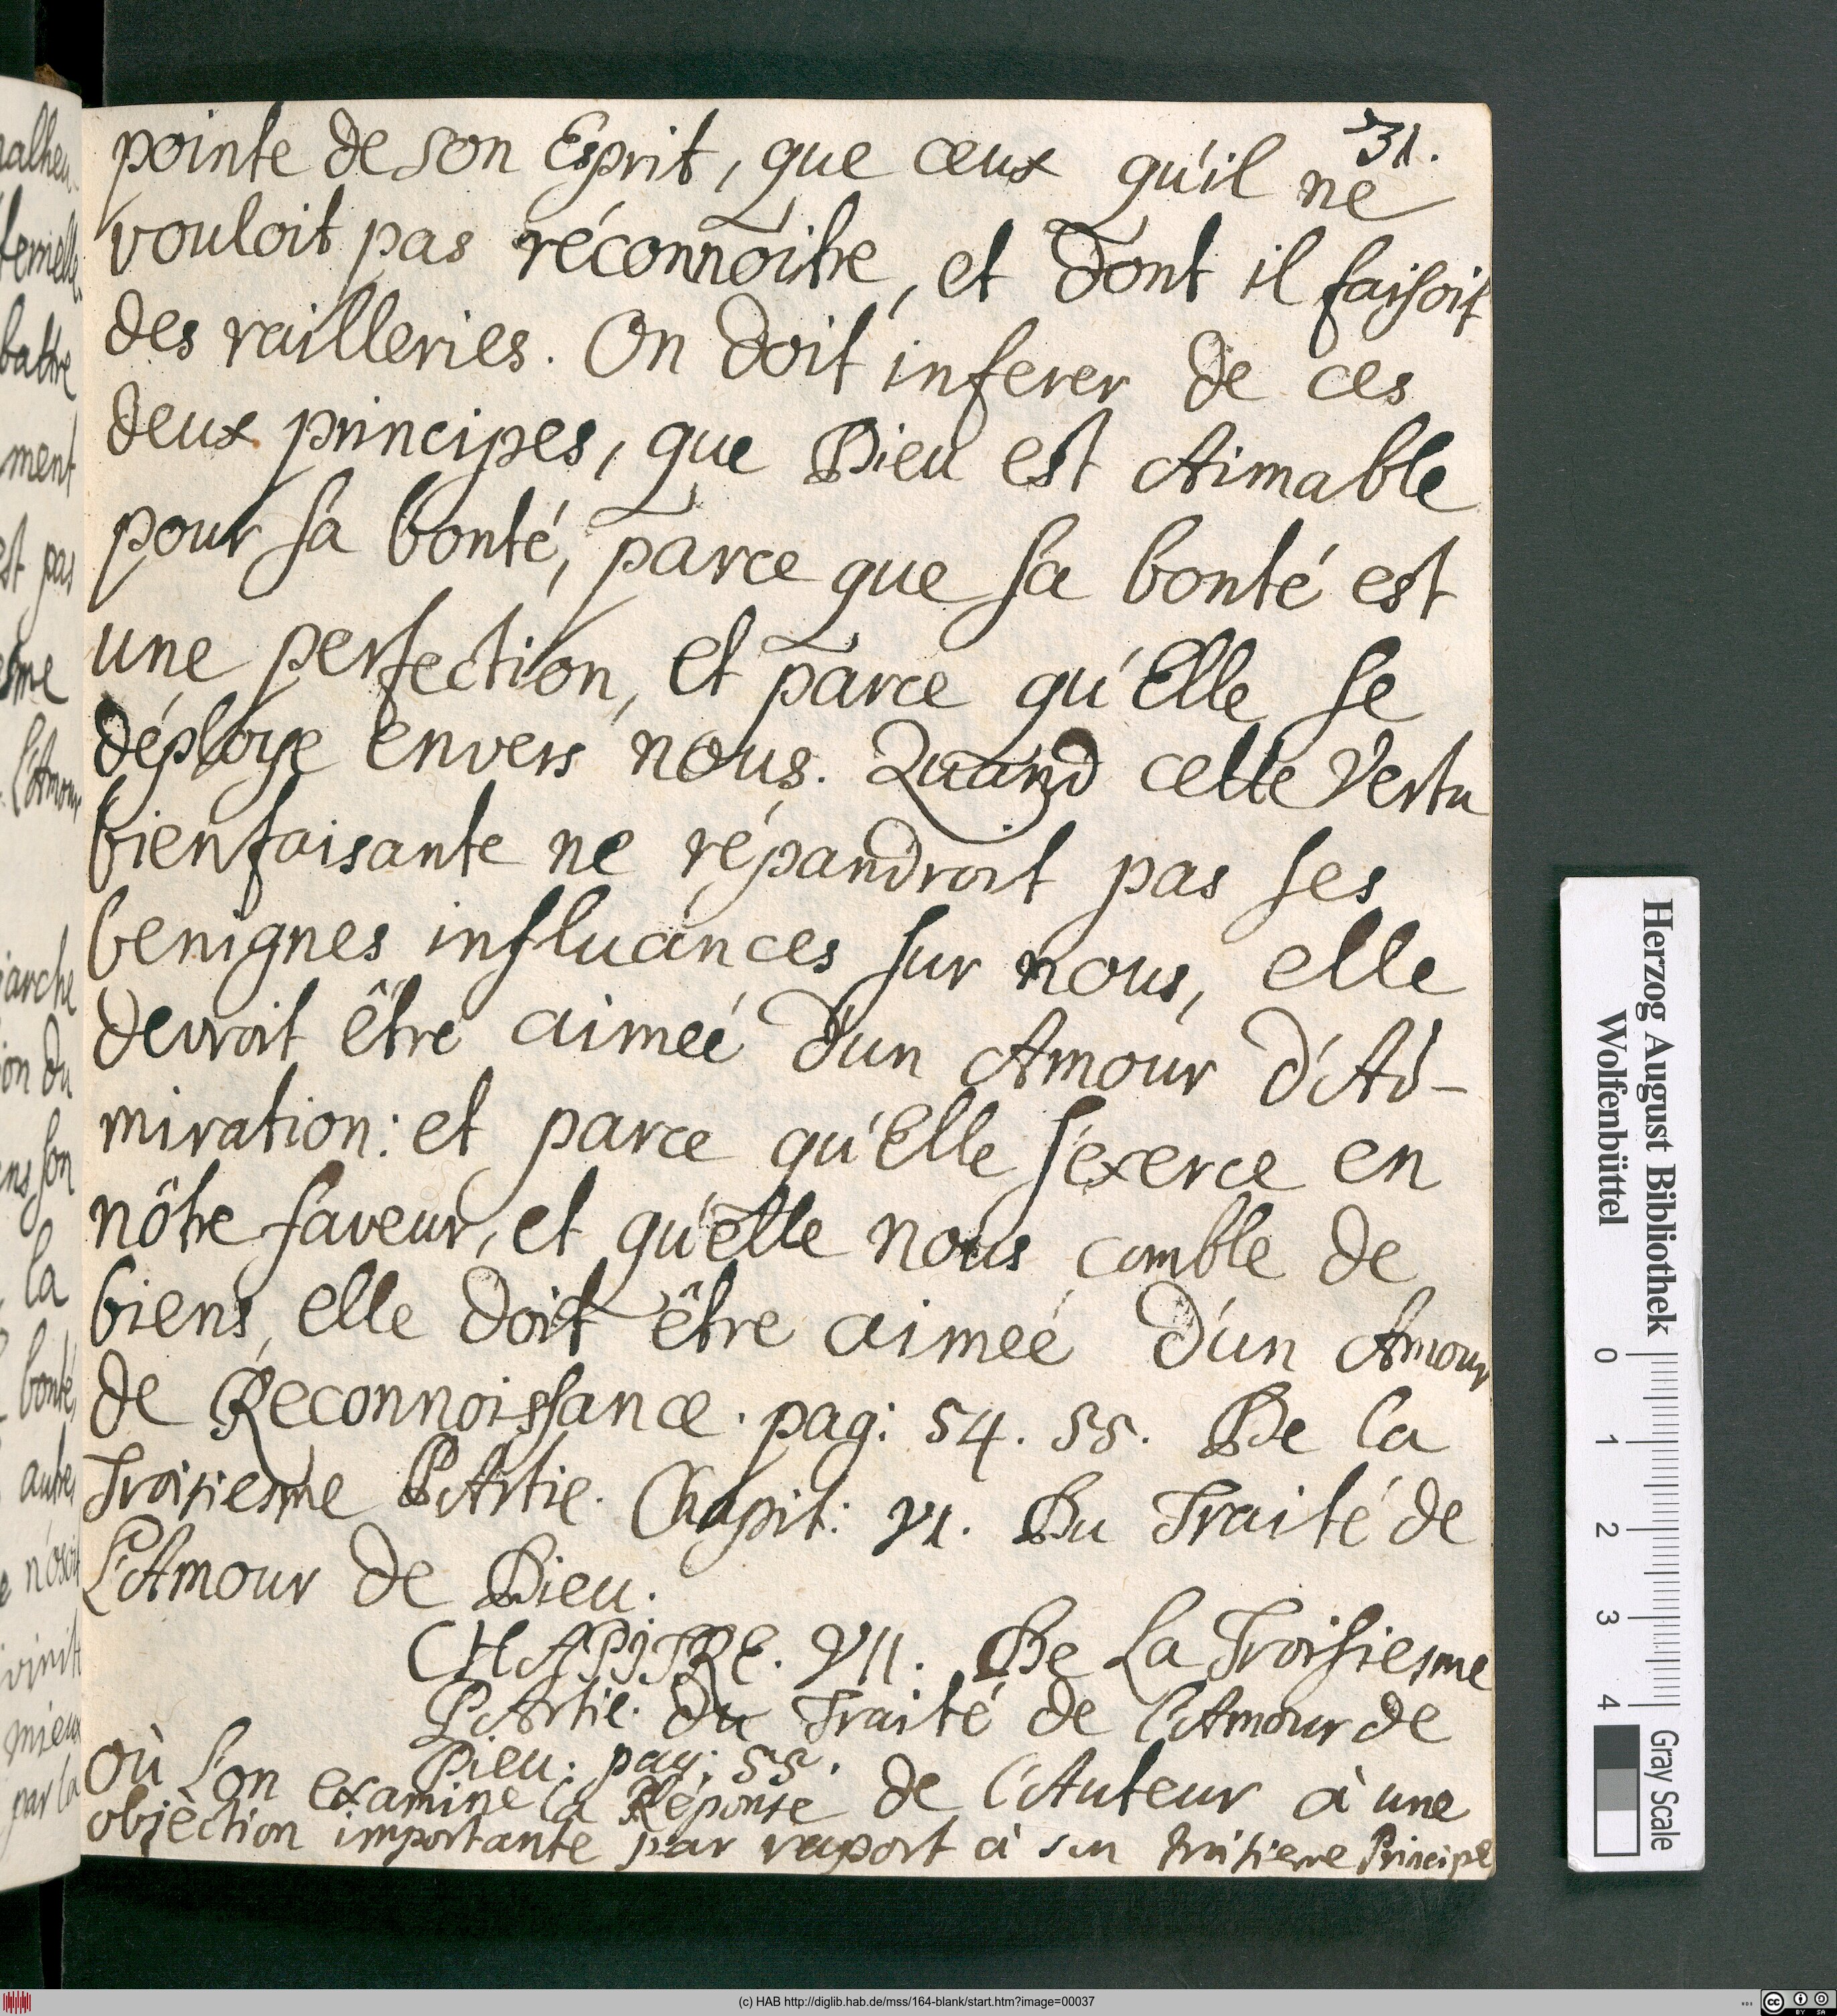 31.
pointe de son Esprit, que ceux qu'il ne
vouloit pas réconnoitre, et dont il faisoit
des railleries. On doit inferer de ces
deux principes, que Dieu est Aimable
pour sa bonté, parce que sa bonté est
une perfection, et parce qu'Elle se
déploye envers nous. Quand cette Vertu
bienfaisante ne répandroit pas ses
benignes influances sur nous, elle
devroit être aimeé d'un Amour d'Ad-
miration: et parce qu'Elle s'exerce en
nôtre faveur, et qu'elle nous comble de
biens, elle doit être aimeé d'un Amour
de Reconnoissance. pag: 54. 55. De la
Troisiesme PArtie. Chapit: VI. Du Traité de
L'Amour de Dieu.
CHAPITRE. VII. De La Troisiesme
PArtie. du Traité de l'Amour de
Dieu. pag: 55.
où L'on examine la Réponse de l'Auteur à une
objection importante par raport à son troisieme Principe
malheu-
battre
ment
est pas
esme
l'Amour
arche
ion du
son
la
bonté,
autre
n'osoit
mieux
par la
Herzog August Bibliothek
Wolfenbüttel
0 1 2 3 4
Gray Scale
(c) HAB http://diglib.hab.de/mss/164-blank/start.htm?image=00037
CC BY SA